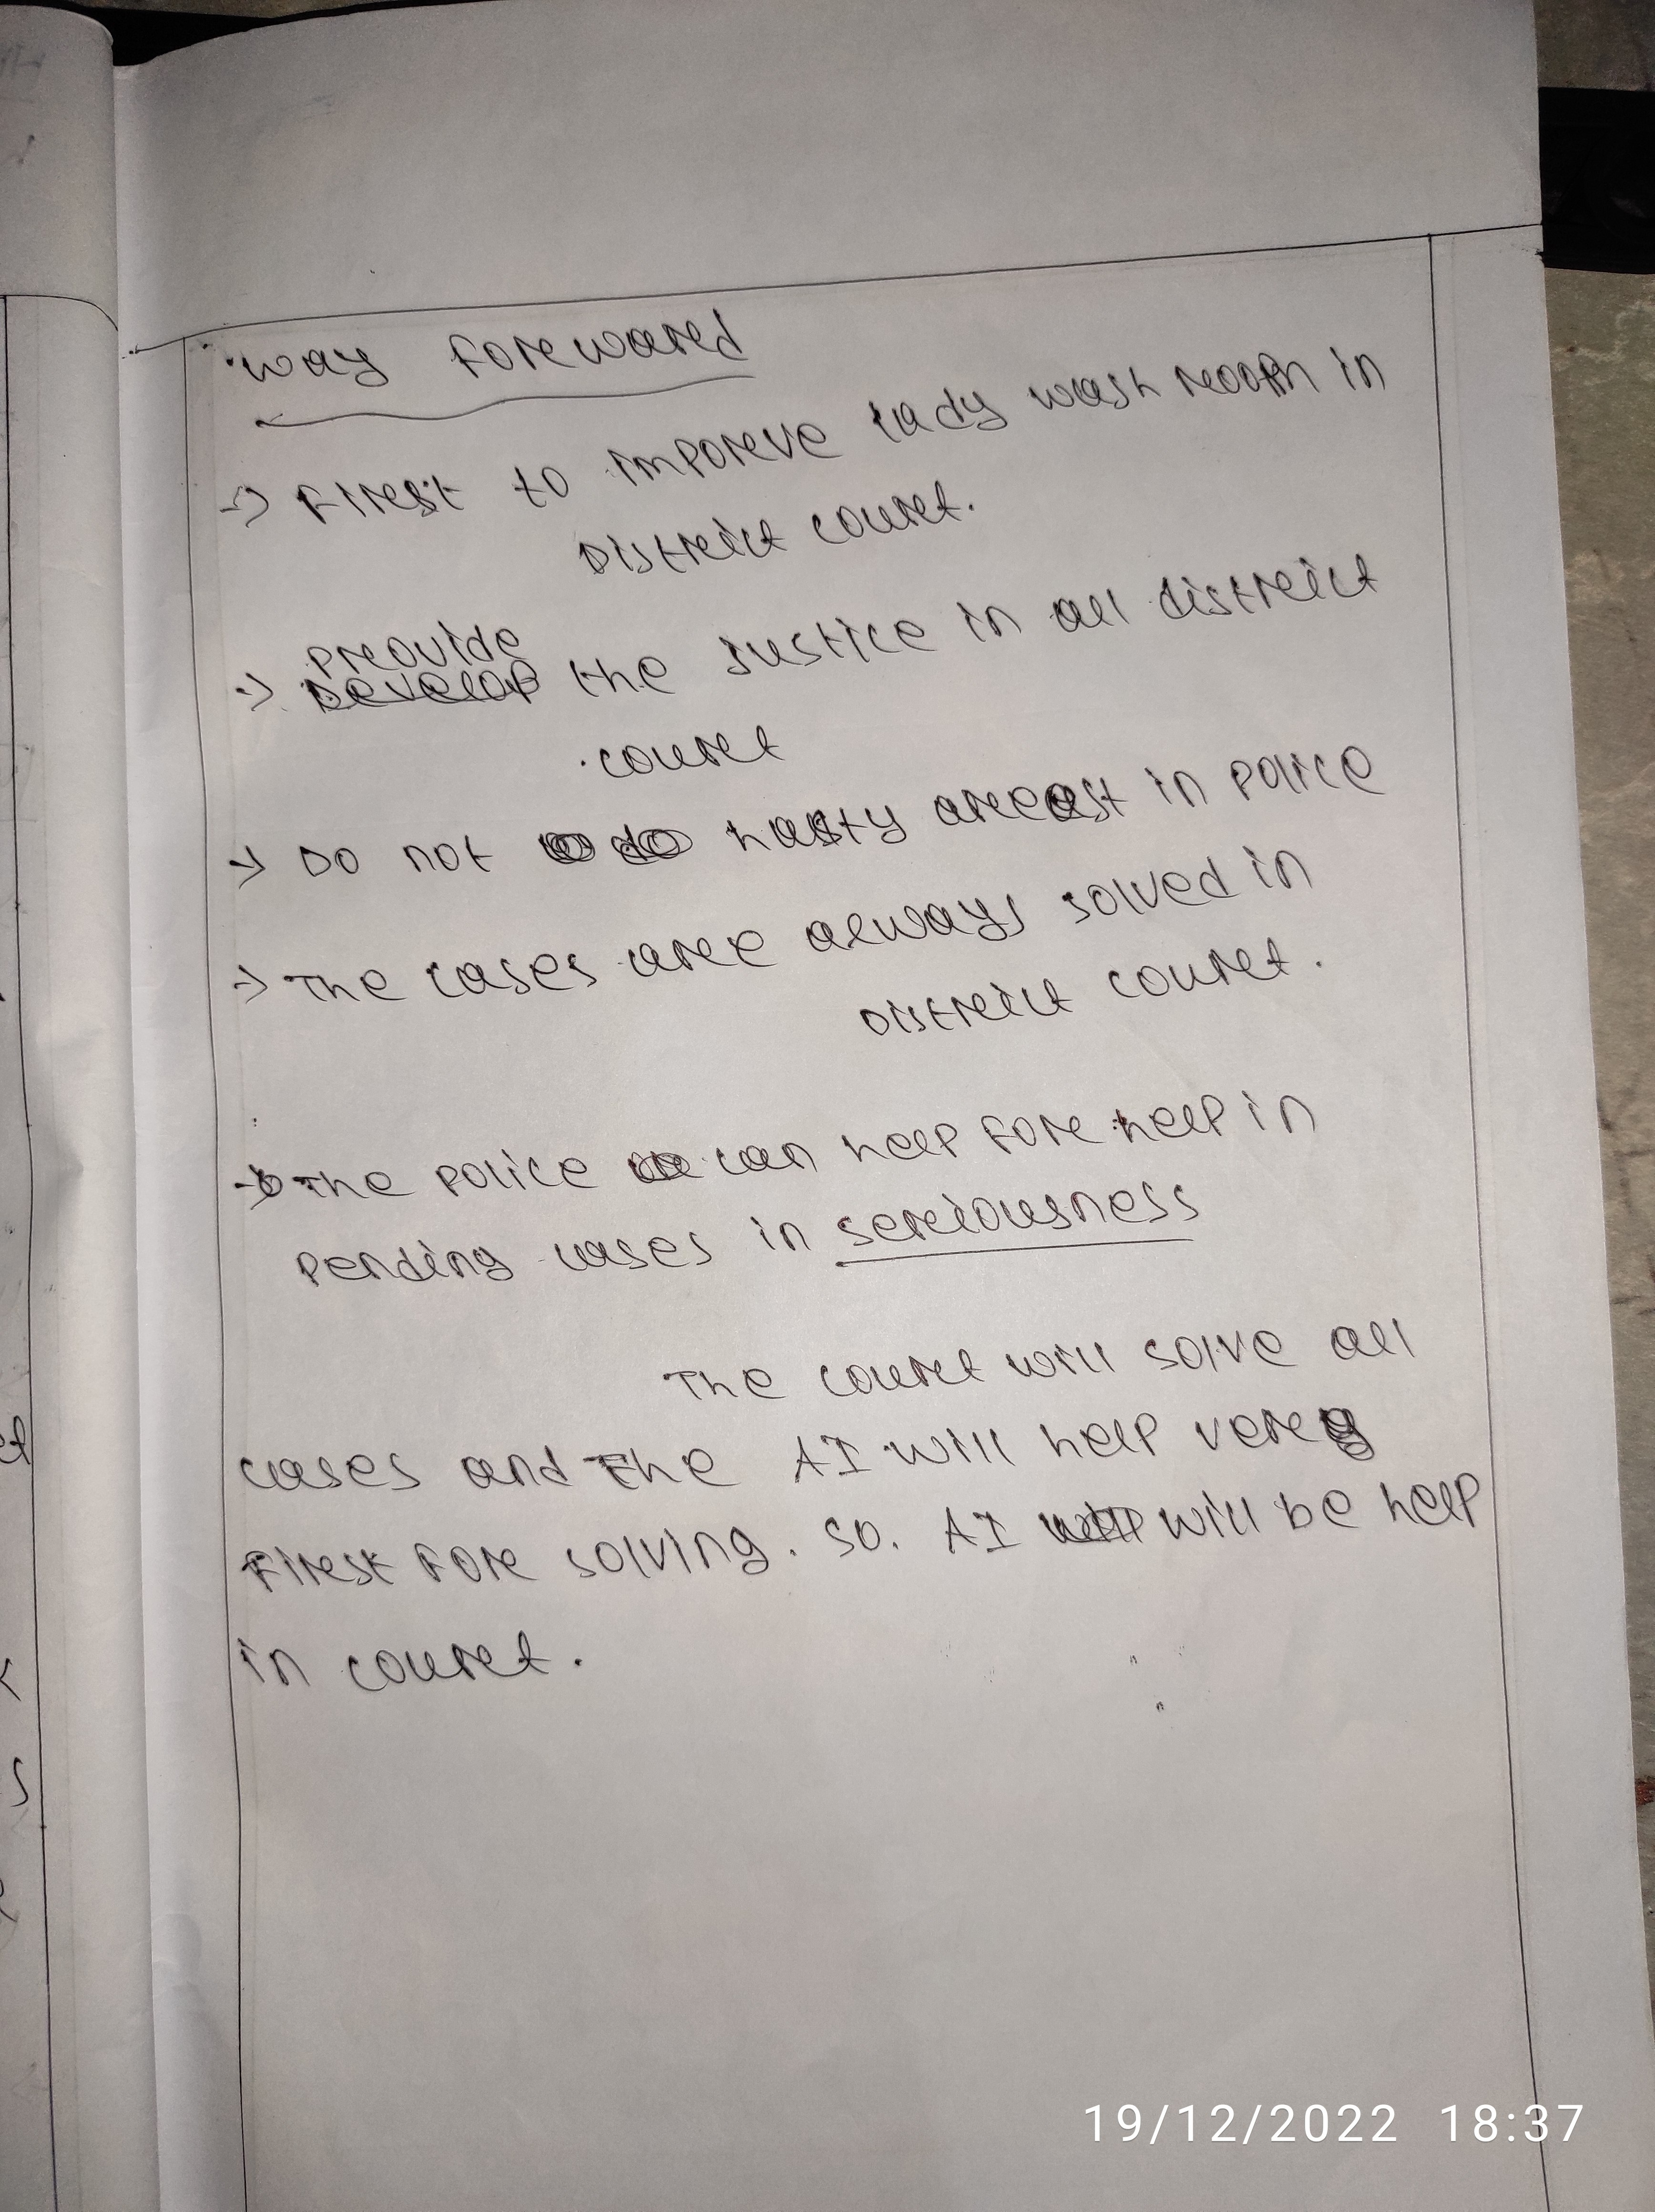 way forward
→ First to imporve lady wash room in
District court.
Provide
→ Develop the Justice in all district
court
→ Do not do hasty arest in police
→ The cases are always solved in
District court.
→ The police can help for help in
pending cases in seriousness
The court will solve all
cases and the AI will help very
First for solving. So. AI will be help
in court.
19/12/2022 18:37